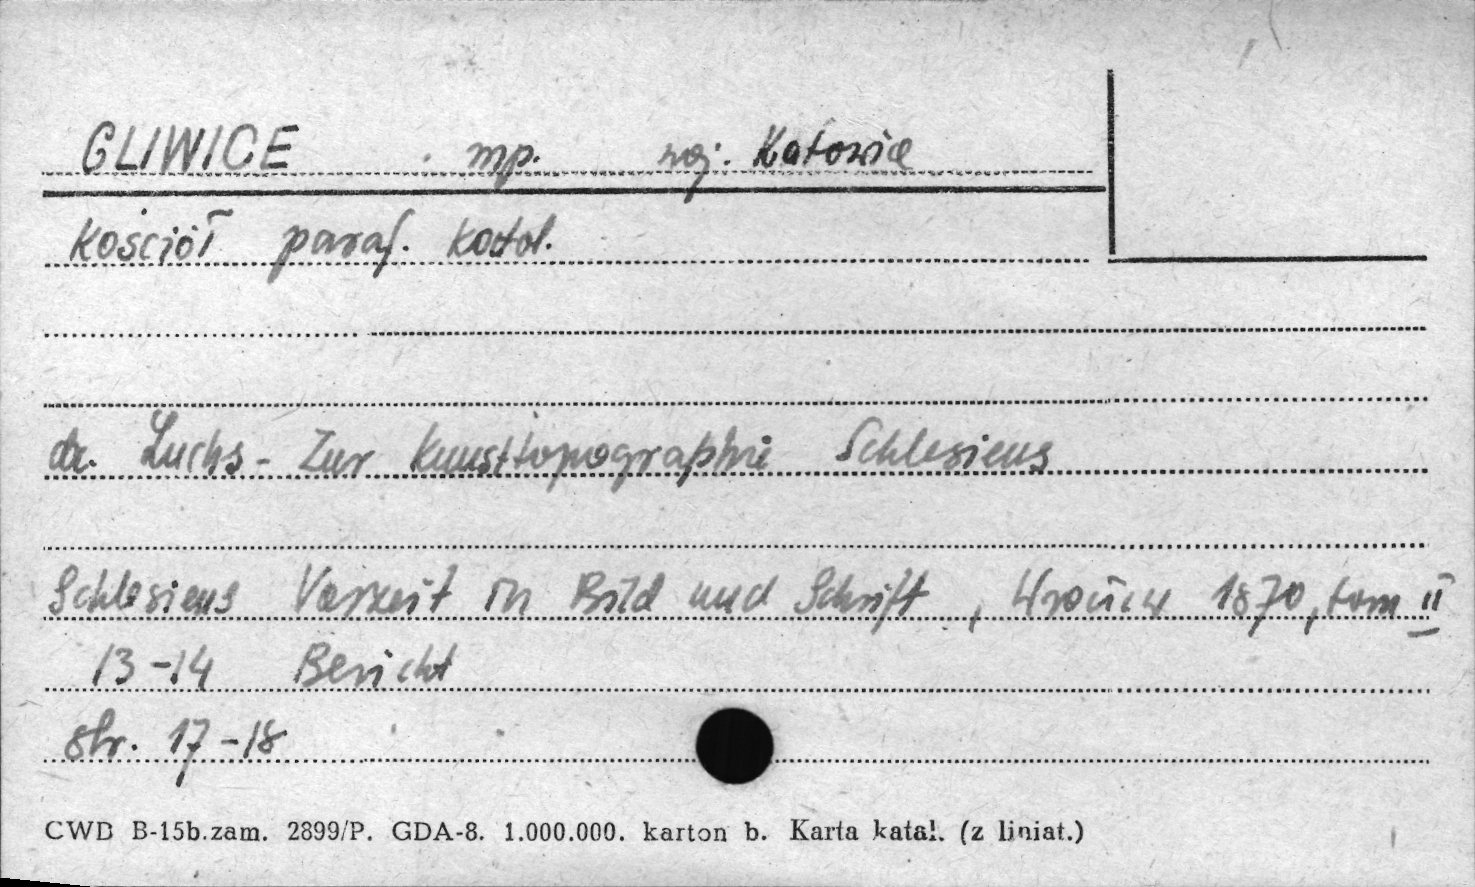 GLIWICE mp. woj. Katowice
Kościół paraf. katol.
dr. Luchs - Zur Kunsttopographie Schlesiens
Schlesiens Vorzeit in Bild und Schrift, Wrocław 1870, tom II
13-14 Bericht
str. 17-18
CWD B-15b.zam. 2899/P. GDA-8. 1.000.000. karton b. Karta katal. (z liniat.)